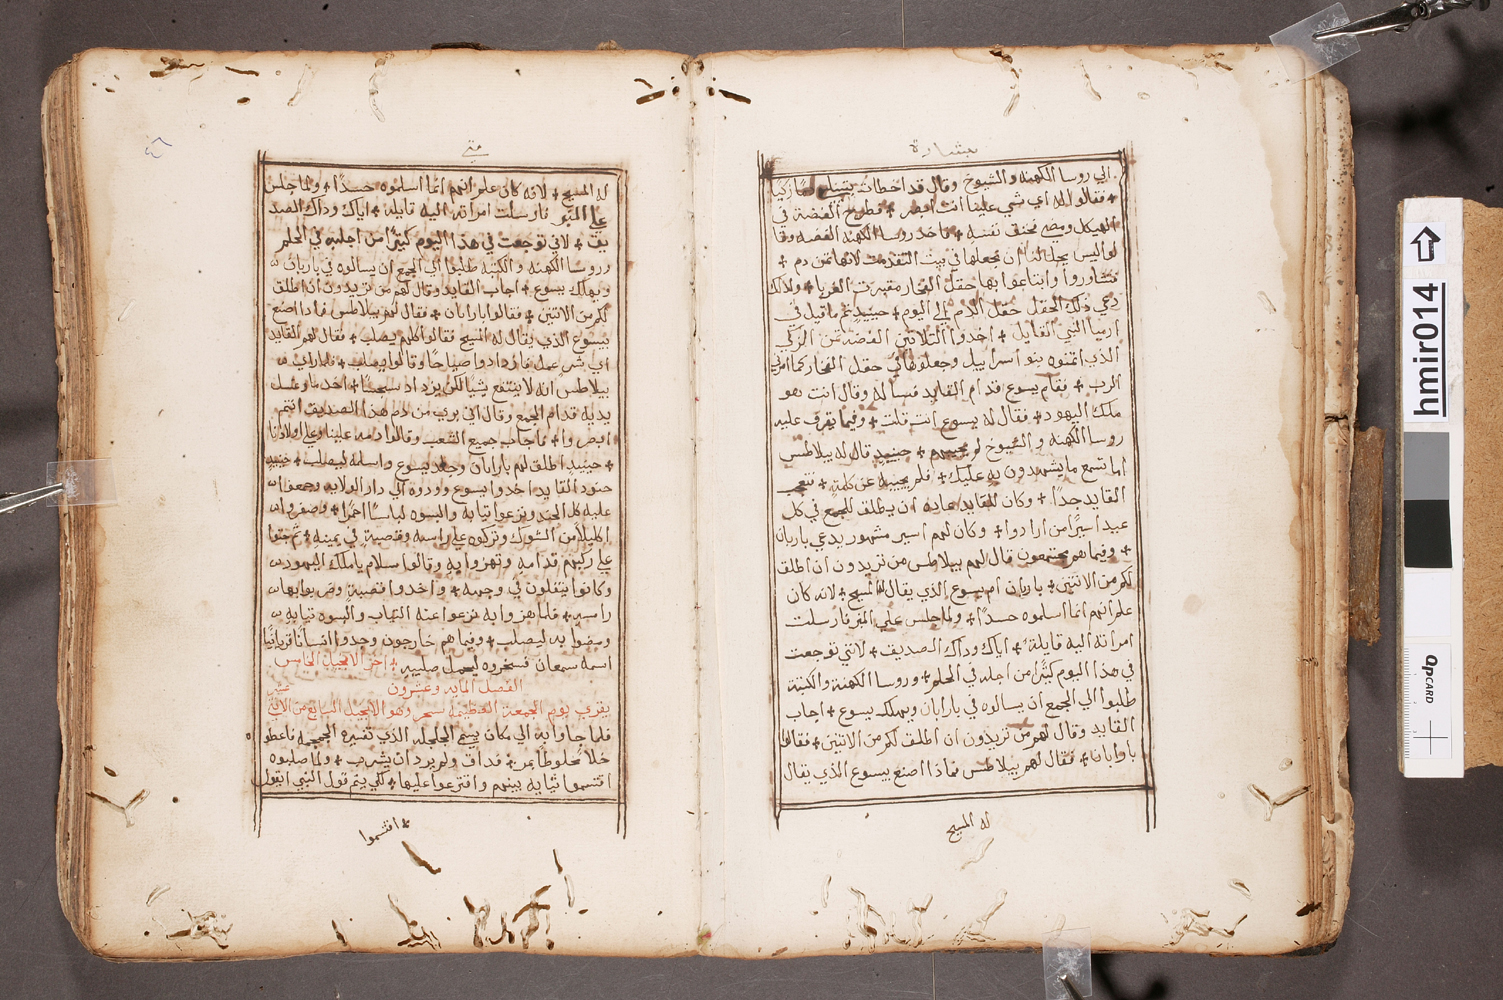 بشارة
الي روسا الكهنه والشيوخ وقال قد اخطات بتسليم دمًا زكيا
+ فقالوا له اي شي علينا انت ابصر + فطرح الفضة في
الهيكل ومضي فخنق نفسه + فاخد روسا الكهنه الفضه وقا
لوا ليس يحل لنا ان نجعلها في بيت التقدمت لانها ثمن دم +
فتشاوروا وابتاعوا بها حقل الفخار مقبرت الغربا + ولذلك
دعي ذلك الحقل حقل الدم الي اليوم + حينيد تم ما قيل في
ارميا النبي القايل + اخدوا التلاتين الفضه تمن الزكي
الذي اتمنوه بنو اسراييل وجعلوها في حقل الفخار كما امرني
الرب + فقام يسوع قدام القايد فساله وقال انت هو
ملك اليهود + فقال له يسوع انت قلت + وفيما يقرف عليه
روسا الكهنه والشيوخ لم يجيبهم + حينيد قال له بيلاطس
اما تسمع ما يشهدون به عليك + فلم يجيبه عن كلمة + فتعجب
القايد جدًا + وكان للقايد عاده ان يطلق للجمع في كل
عيد اسيرًا من ارادوا + وكان لهم اسير مشهور يدعي باربان
+ وفيما هم مجتمعون قال لهم بيلاطس من تريدون ان اطلق
لكم من الاتنين + باربان ام يسوع الذي يقال له المسيح + لانه كان
علم انهم انما اسلموه حسدًا + ولما جلس علي المنبر فارسلت
امراته اليه قايلة + اياك وداك الصديف + لانني توجعت
في هذا اليوم كتيرًا من اجله في الحلم + وروسا الكهنة والكتبة
طلبوا الي الجمع ان يسالوه في بارابان ويهلك يسوع + اجاب
القايد وقال لهم من تريدون ان اطلق لكم من الاتنين + فقالوا
بارابان + فقال لهم بيلاطس فماذا اصنع بيسوع الذي يقال
له المسيح
متي
له المسيح + لانه كان علم انهم انما اسلموه حسدًا + ولما جلس
علي المنبر فارسلت امراته اليه قايله + اياك وذاك الصد
يف + لاني توجعت في هذا اليوم كتيرًا من اجله في الحلم
وروسا الكهنه والكتبه طلبوا الي الجمع ان يسالوه في باربان
ويهلك يسوع + اجاب القايد وقال لهم من تريدون ان اطلق
لكم من الاتنين + فقالوا بارابان + فقال لهم بيلاطس فمادا اصنع
بيسوع الذي يقال له المسيح فقالوا كلهم يصلب + فقال لهم القايد
اي شر عمل فازدادوا صياحًا وقالوا يصلب + فلما راي
بيلاطس انه لا ينتفع بشيا لكن يزداد سجسًا + اخد ما وغسل
يديه قدام الجمع وقال اني بري من دم هدا الصديف انتم
ابصروا + فاجاب جميع الشعب وقالوا دمه علينا وعلي اولادنا
+ حينيد اطلق لهم بارابان وجلد يسوع واسلمه ليصلب + حينيد
جنود القايد اخدوا يسوع وودوه الي دار الولايه وجمعوا
عليه كل الجند ونزعوا تيابه والبسوه لباسًا احمرًا + وضفروا
اكليلًا من الشوك وتركوه علي راسه وقصبة في يمينه + ثم جتوا
علي ركبهم قدامه وتهزوا به وقالوا سلام يا ملك اليهود
وكانوا يتفلون في وجهه + واخدوا قصبة وضربوا بها
راسه + فلما هزوا به نزعوا عنه التياب والبسوه تيابه
ومضوا به ليصلب + وفيما هم خارجون وجدوا انسانًا قريانيًا
اسمه سمعان فسخروه ليحمل صليبه + اخر الانجيل الخامس
عشر
الفصل المايه وعشرون
يقري يوم الجمعة العظيمة سحر وهو الانجيل السابع من الاتني
فلما جاوا به الي مكان يسمي الجلجله الذي تفسيره الجمجمه فاعطوه
خلًا مخلوطًا بمر + فداق ولم يرد ان يشرب + ولما صلبوه
اقتسموا تيابه بينهم واقترعوا عليها + لكي يتم قول النبي ايقول
+ اقتسموا